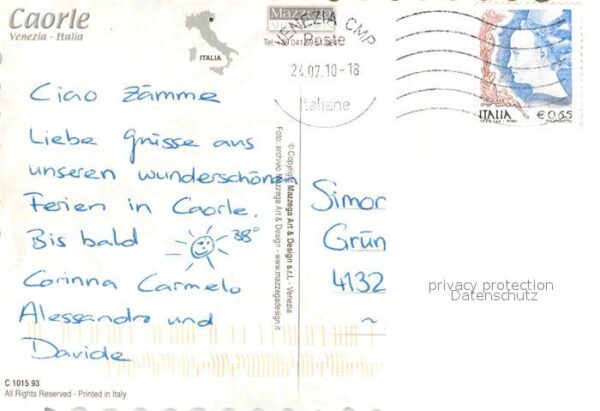 Caorle
Venezia - Italia
ITALIA
Mazzega
VENEZIA CMP
Poste
24.07.10-18
Italiane
ITALIA
€ 0,65
Ciao Zämme
Liebe Grüsse aus
unseren wunderschönen
Ferien in Caorle.
Bis bald 38°
Corinna Carmelo
Alessandro und
Davide
© Copyright Mazzega Art & Design s.r.l. - Venezia
Foto: archivio Mazzega Art & Design - www.mazzegadesign.it
Simon
Grün
4132
privacy protection
Datenschutz
C 1015 93
All Rights Reserved - Printed in Italy